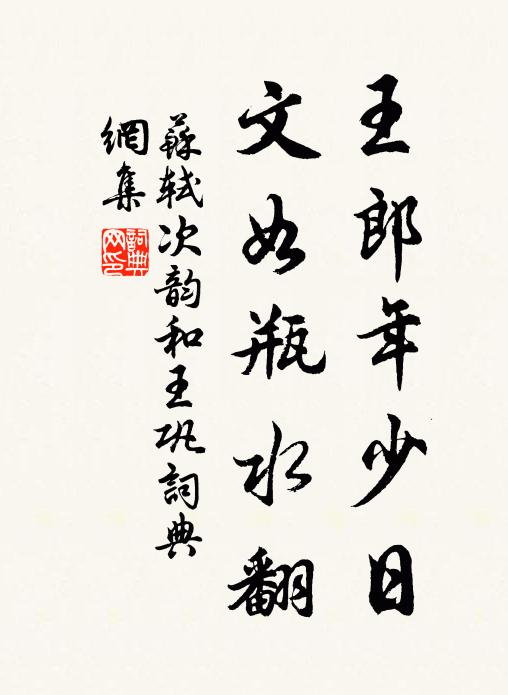 王郎年少日
文如瓶水翻
蘇軾次韵和王巩詞典
網集
詞典
网印